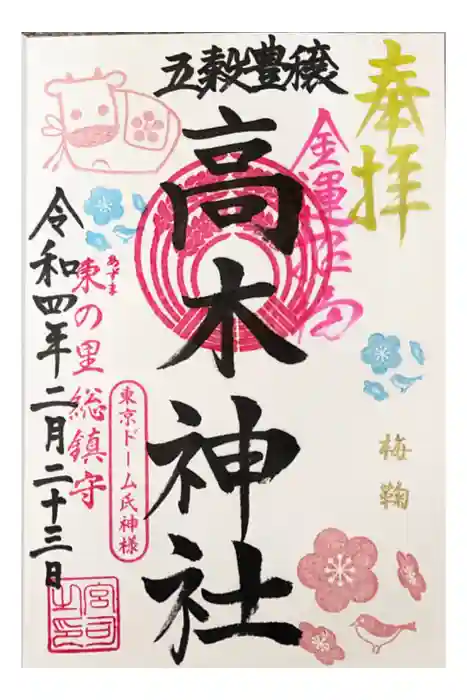 奉拝
金運
梅鞠
五穀豊穣
高木神社
東京ドーム氏神様
あずま
東の里総鎮守
令和四年二月二十三日
宮司之印